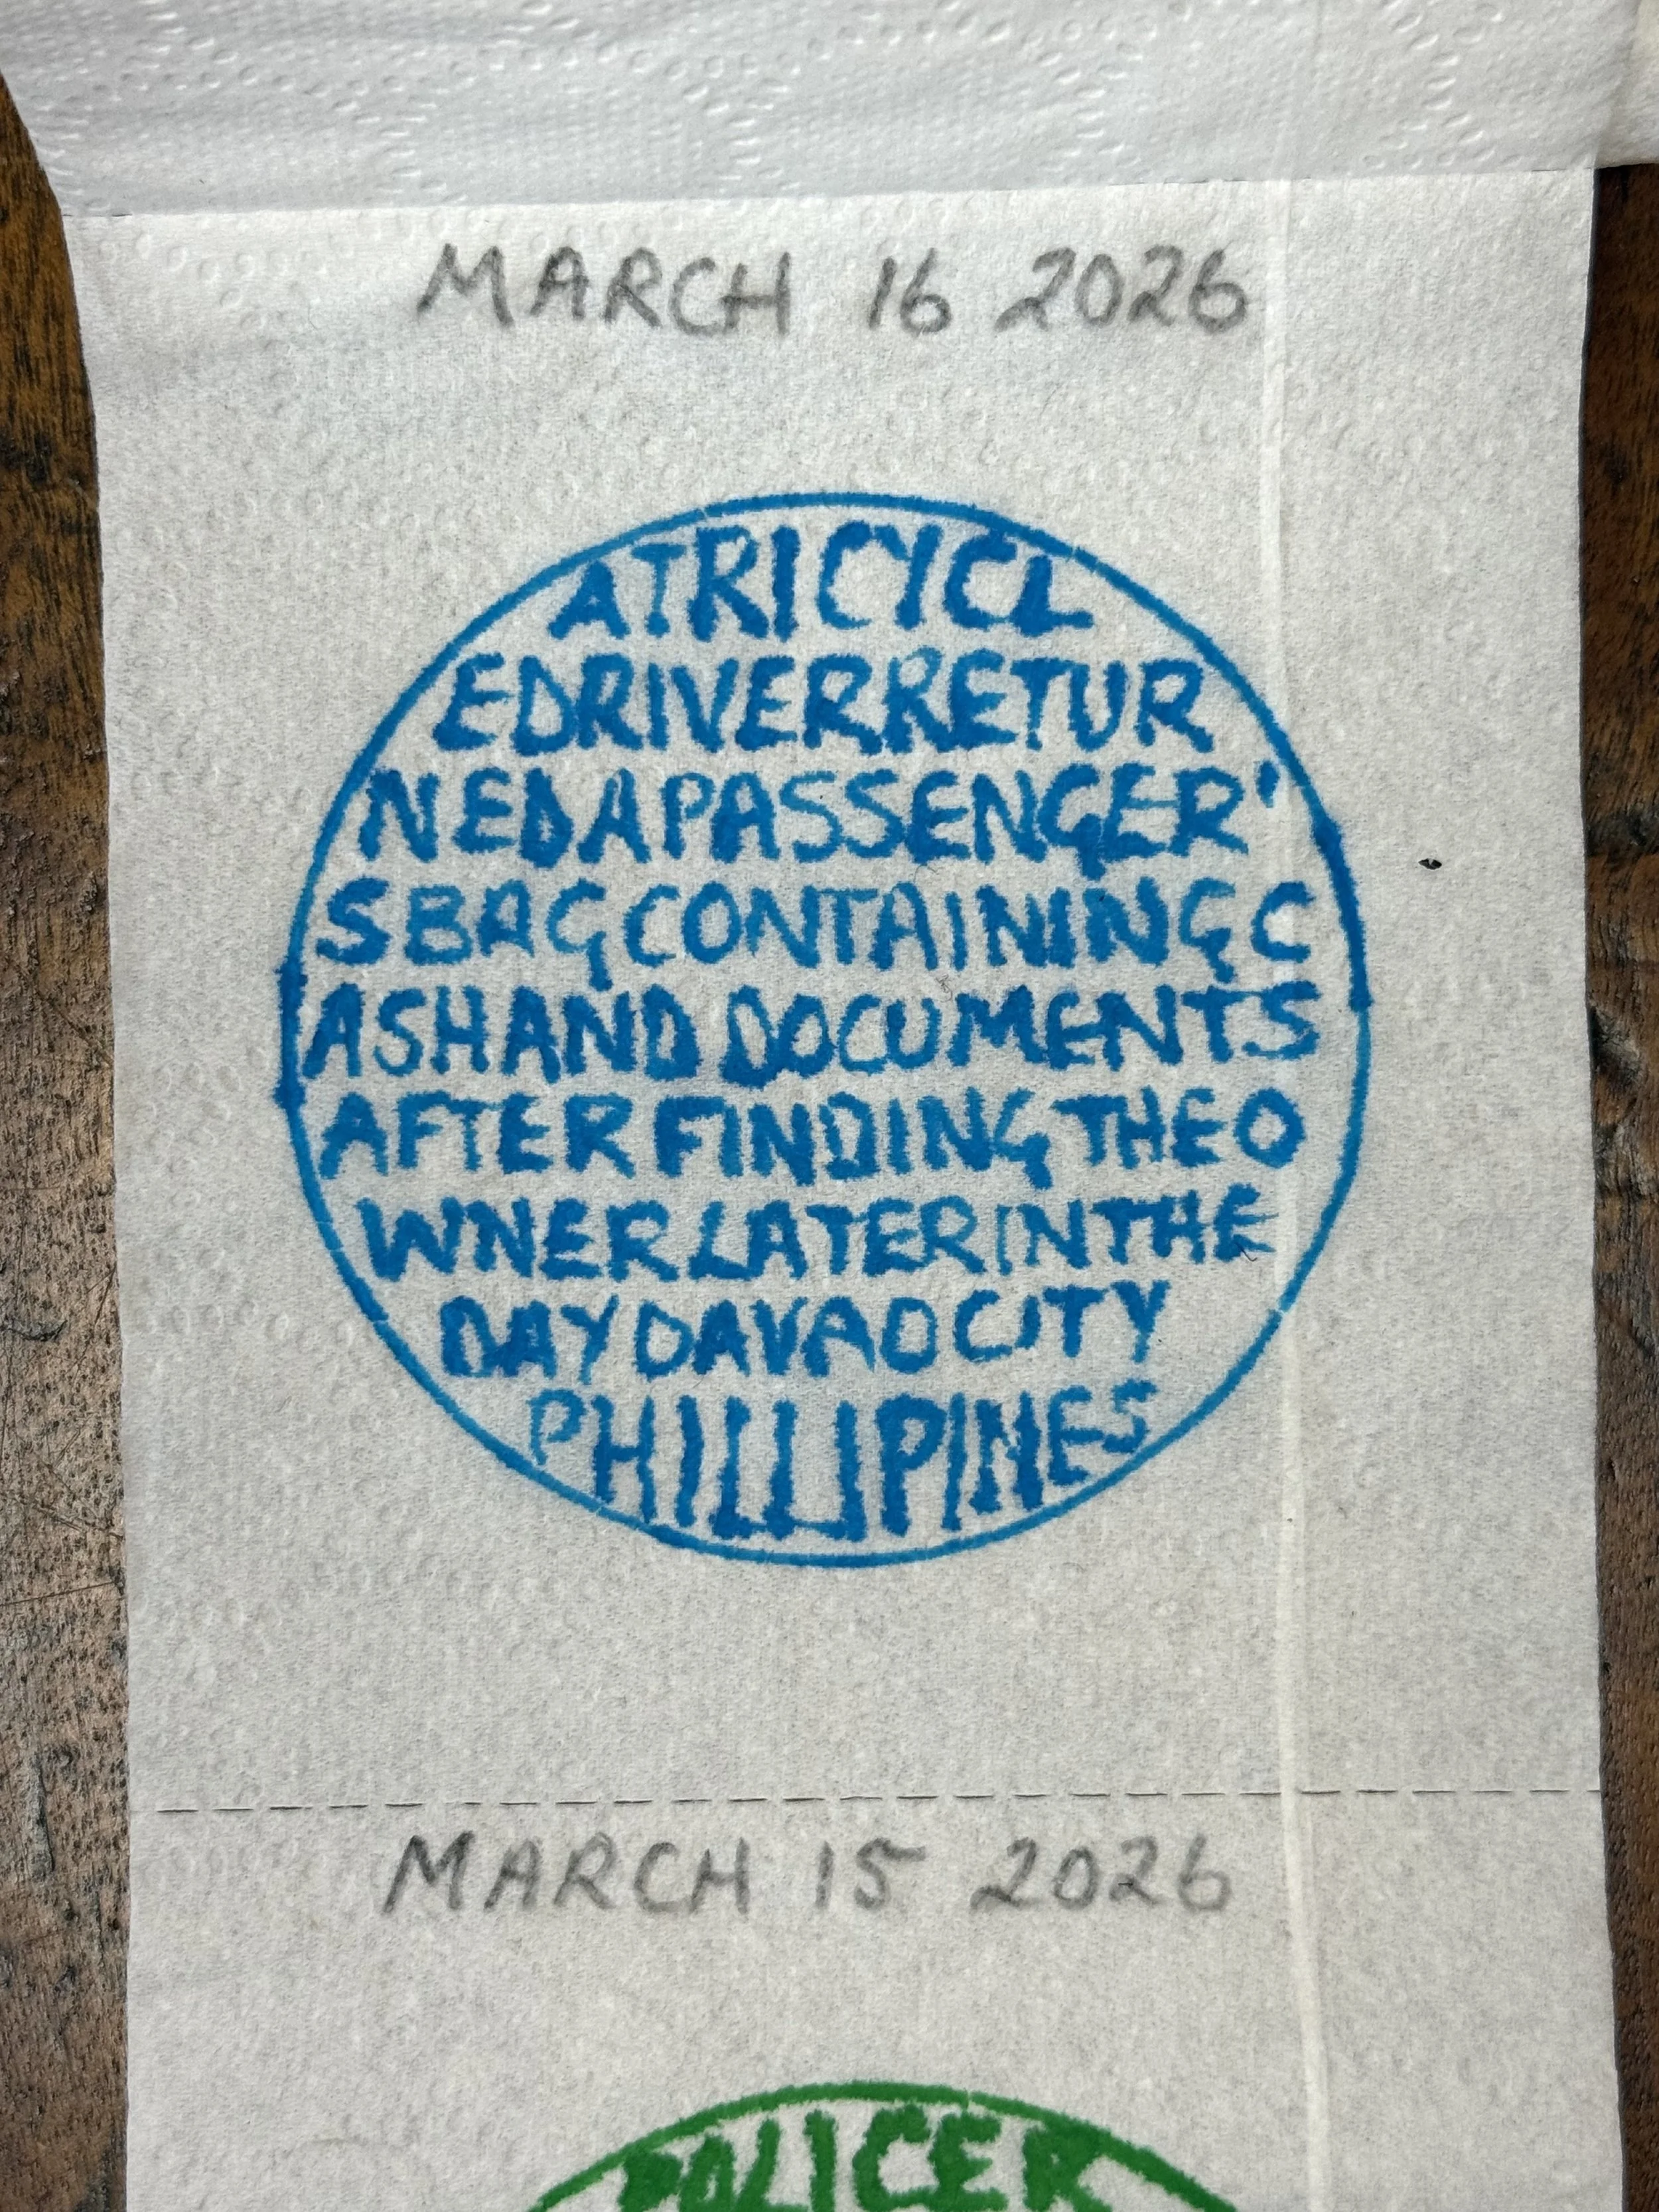 MARCH 16 2026
ATRICYCL
EDRIVERRETUR
NEDAPASSENGER'
SBAGCONTAININGC
ASHANDDOCUMENTS
AFTERFINDINGTHEO
WNERLATERINTHE
DAYDAVAOCITY
PHILLIPINES
MARCH 15 2026
POLICER